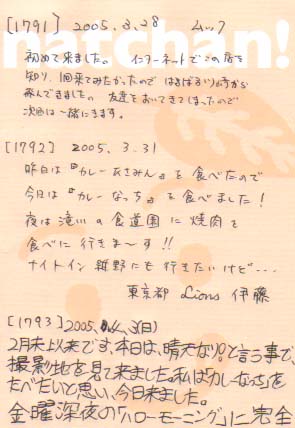 natchan!
[1791] 2005.3.28 ムック
初めて来ました。インターネットでこの店を
知り、1回来てみたかったので はるばる
飛んできました。友達をおいてきてしまったので
次回は一緒にきます。
[1792] 2005.3.31
昨日は『カレーあさみん』を食べたので
今日は『カレーなっち』を食べました!
夜は滝いの食道園に焼肉を
食べに行きま〜す!!
ナイトイン 雑野にも行きたいけど・・・
東京都 Lions 伊藤
[1793] 2005、4、3(日)
2月末以来です、本日は、晴天なり?と言う事で、
撮影地を見て来ました。私は「カレーなっち」を
たべたいと思い、今日来ました。
金曜深夜の「ハローモーニング」に完全